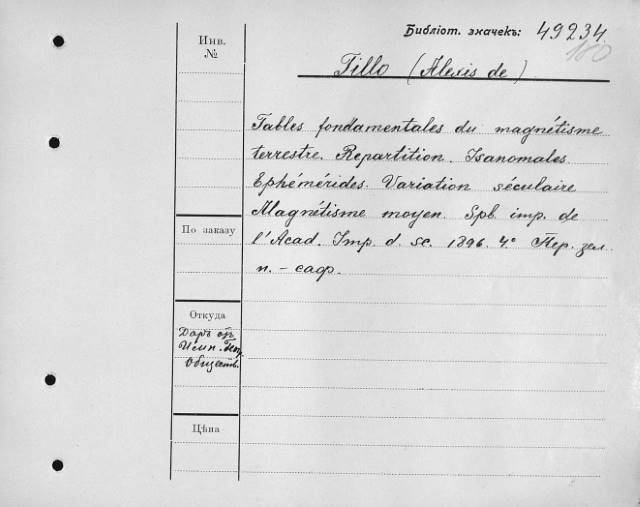 Библіот. значекъ: 49234
180
Инв.
№
Tillo (Alexis de)
Tables fondamentales du magnétisme
terrestre. Repartition. Isanomales
Ephémérides. Variation séculaire
Magnétisme moyen. Spb. imp. de
l'Acad. Imp. d. sc. 1896. 4° Пер. зел
п. – саф.
По заказу
Откуда
Даръ отъ
Имп.
Обществ.
Цѣна